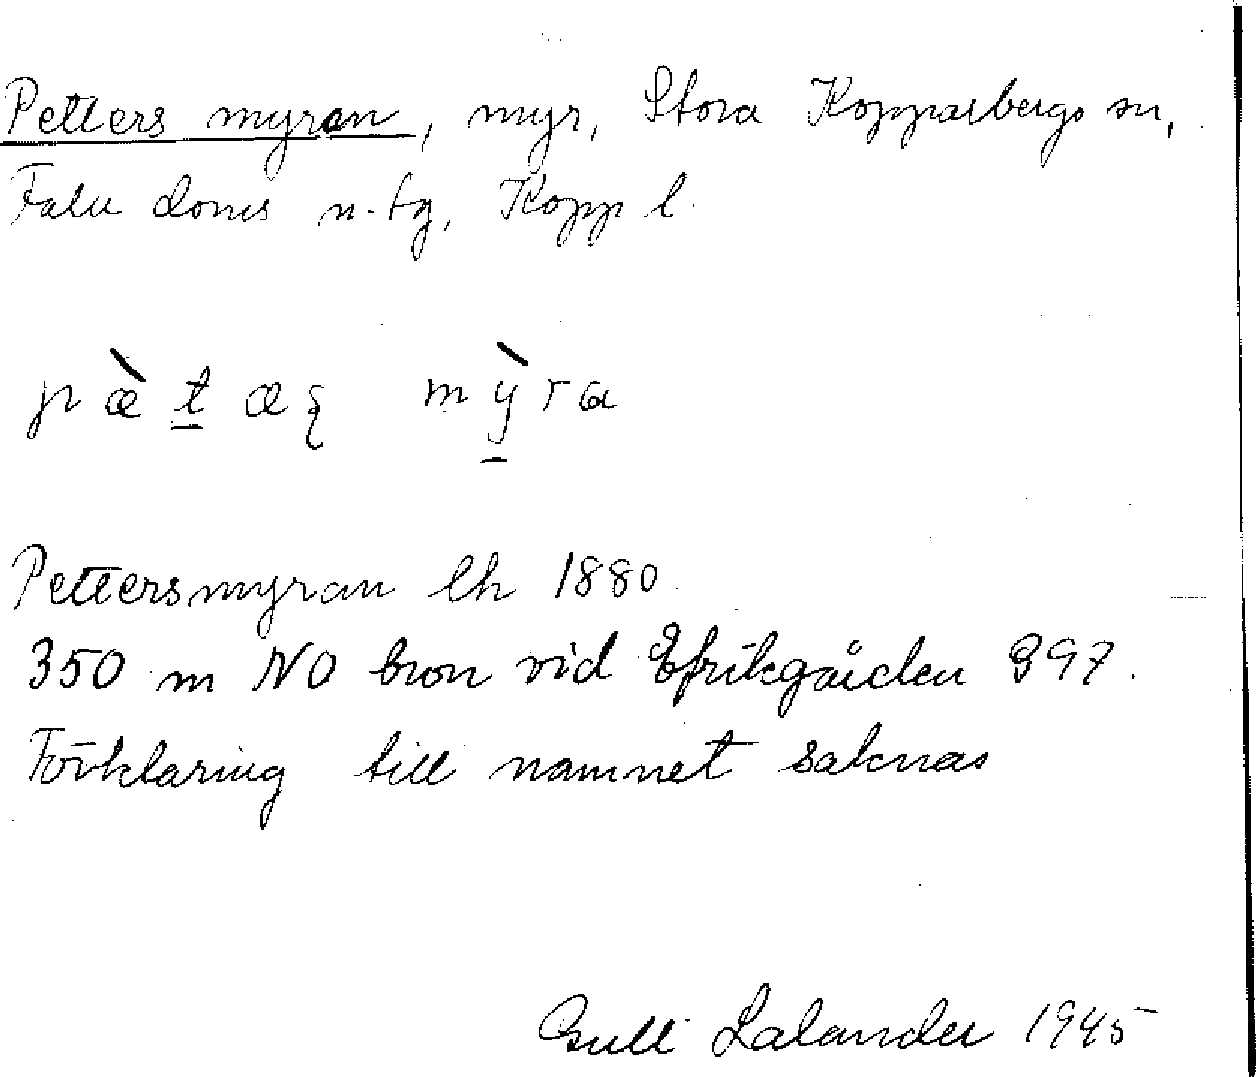 Petters myran, myr, Stora Kopparbergs sn,
Falu doms n. tg, Kopp l.
pæ̀t̲æș mỳ̲ra
Pettersmyran lh 1880
350 m NO bron vid Efrikgården 397.
Förklaring till namnet saknas
Gulli Lalander 1945